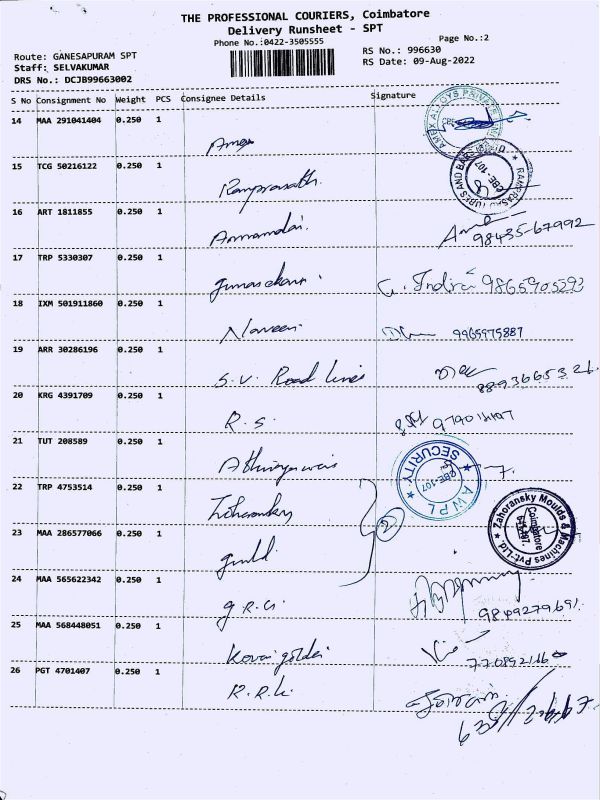 THE PROFESSIONAL COURIERS, Coimbatore
Delivery Runsheet - SPT
Phone No.:0422-3505555
Page No.:2
Route: GANESAPURAM SPT
RS No.: 996630
Staff: SELVAKUMAR
RS Date: 09-Aug-2022
DRS No.: DCJB99663002
S No Consignment No Weight PCS Consignee Details Signature
14 MAA 291041404 0.250 1
Amex
15 TCG 50216122 0.250 1
Ramprasath
16 ART 1811855 0.250 1
Annamalai
98435-67992
17 TRP 5330307 0.250 1
Gunasekaran
G. Indira 9865905293
18 IXM 501911860 0.250 1
Naveen
9965975887
19 ARR 30286196 0.250 1
S.V. Road lines
20 KRG 4391709 0.250 1
R.S.
21 TUT 208589 0.250 1
SECURITY
CBE-107
AWPL
22 TRP 4753514 0.250 1
2
Zahoransky Moulds & Machines Pvt-Ltd.
Coimbatore
23 MAA 286577066 0.250 1
24 MAA 565622342 0.250 1
9849279691
25 MAA 568448051 0.250 1
Kovai golden
26 PGT 4701407 0.250 1